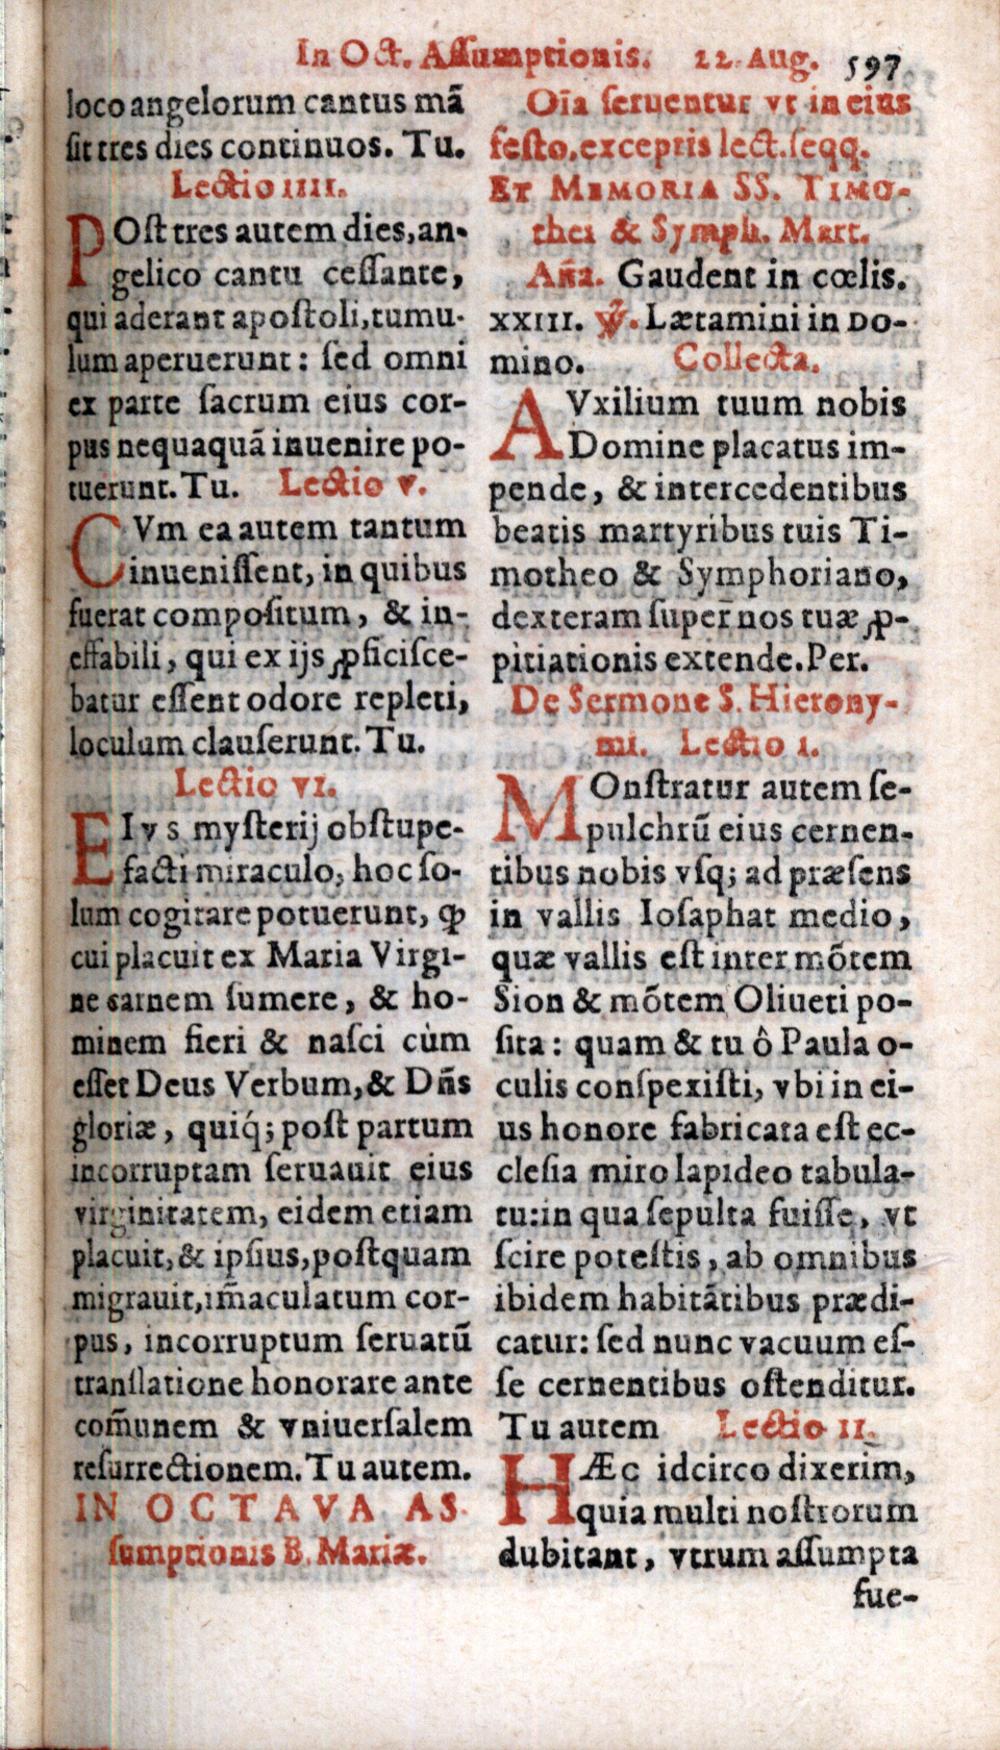 In Oct. Aſſumptionis. 22. Aug. 597
loco angelorum cantus mã
ſit tres dies continuos. Tu.
Lectio IIII.
POſt tres autem dies, an-
gelico cantu ceſſante,
qui aderant apoſtoli, tumu-
lum aperuerunt: ſed omni
ex parte ſacrum eius cor-
pus nequaquã inuenire po-
tuerunt. Tu. Lectio v.
CVm ea autem tantum
inueniſſent, in quibus
fuerat compoſitum, & in-
effabili, qui ex ijs ꝓficiſce-
batur eſſent odore repleti,
loculum clauſerunt. Tu.
Lectio VI.
EIvs myſterij obſtupe-
facti miraculo, hoc ſo-
lum cogitare potuerunt, ꝙ
cui placuit ex Maria Virgi-
ne carnem ſumere, & ho-
minem fieri & naſci cùm
eſſet Deus Verbum, & Dñs
gloriæ, quiq́; poſt partum
incorruptam ſeruauit eius
virginitatem, eidem etiam
placuit, & ipſius, poſtquam
migrauit, im̃aculatum cor-
pus, incorruptum ſeruatũ
tranſlatione honorare ante
com̃unem & vniuerſalem
reſurrectionem. Tu autem.
IN OCTAVA AS-
ſumptionis B. Mariæ.
Oĩa ſeruentur vt in eius
feſto, exceptis lect. ſeqq.
ET MEMORIA SS. TIMO-
thei & Symph. Mart.
Añа. Gaudent in cœlis.
XXIII. ℣. Lætamini in DO-
mino. Collecta.
AVxilium tuum nobis
Domine placatus im-
pende, & intercedentibus
beatis martyribus tuis Ti-
motheo & Symphoriano,
dexteram ſuper nos tuæ ꝓ-
pitiationis extende. Per.
De Sermone S. Hierony-
mi. Lectio I.
MOnſtratur autem ſe-
pulchrũ eius cernen-
tibus nobis vſq; ad præſens
in vallis Ioſaphat medio,
quæ vallis eſt inter mõtem
Sion & mõtem Oliueti po-
ſita: quam & tu ô Paula o-
culis conſpexiſti, vbi in ei-
us honore fabricata eſt ec-
cleſia miro lapideo tabula-
tu: in qua ſepulta fuiſſe, vt
ſcire poteſtis, ab omnibus
ibidem habitãtibus prædi-
catur: ſed nunc vacuum eſ-
ſe cernentibus oſtenditur.
Tu autem Lectio II.
HÆc idcirco dixerim,
quia multi noſtrorum
dubitant, vtrum aſſumpta
fue-